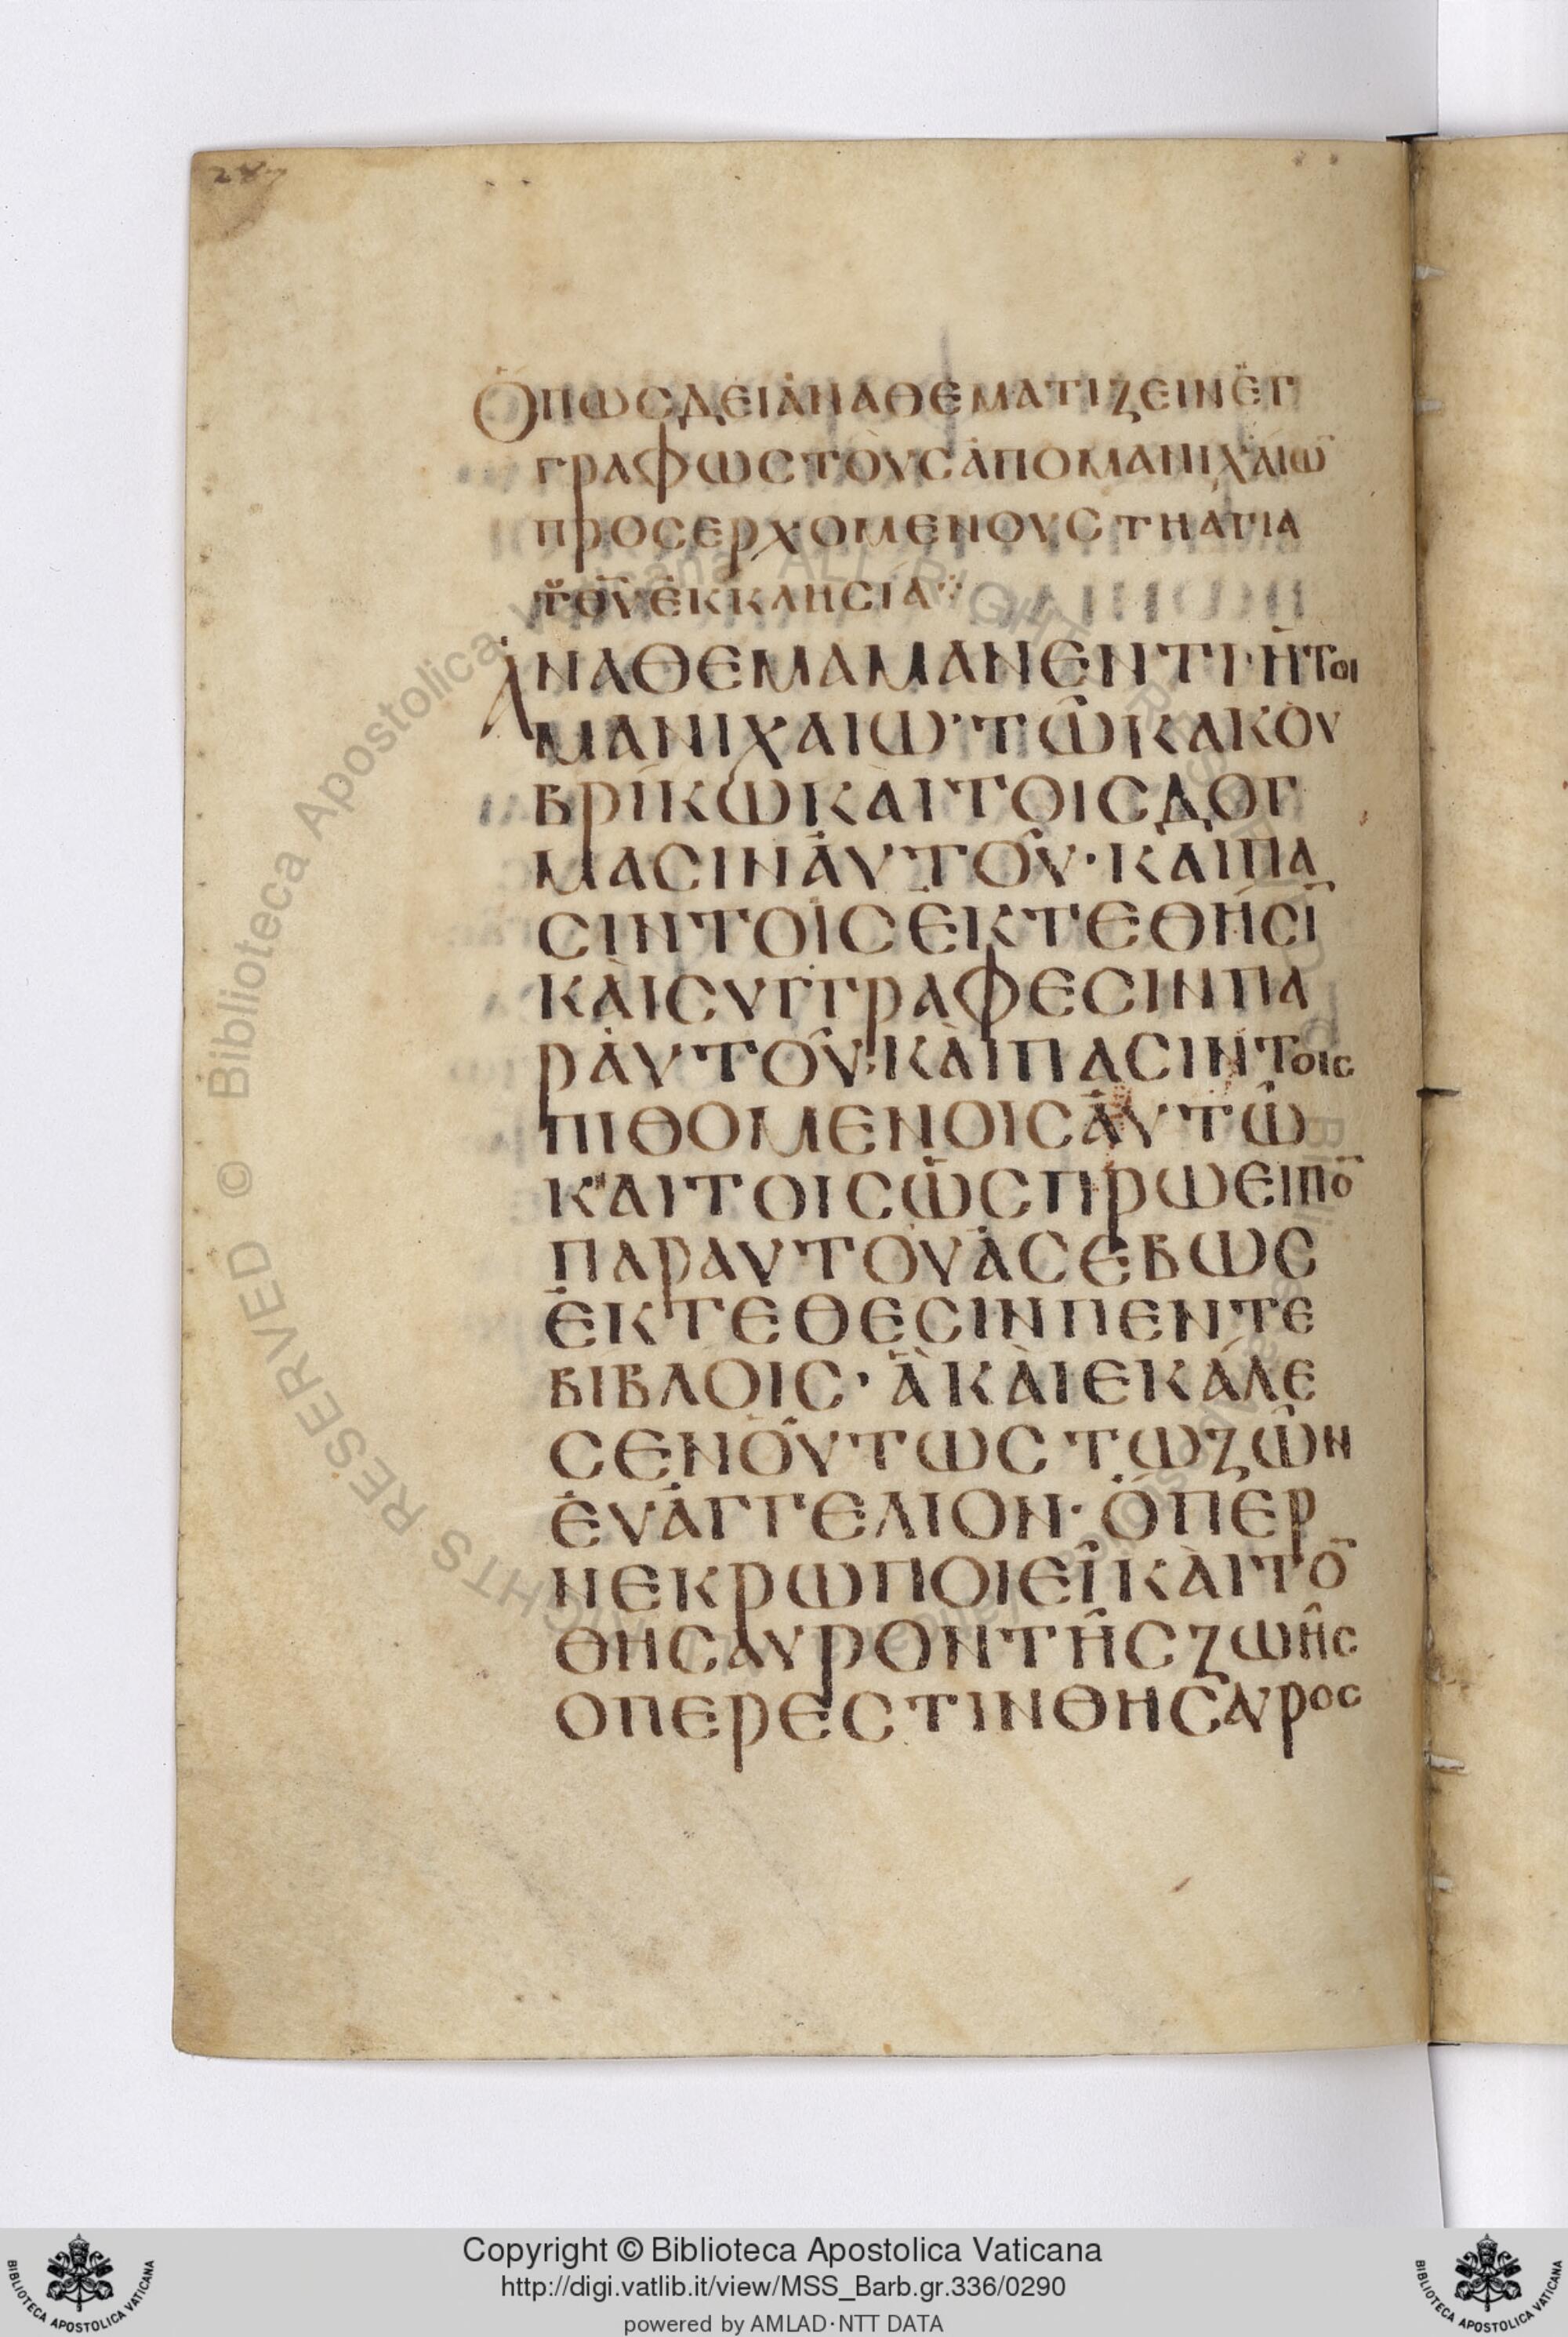 247
ὍΠΩCΔΕΙἈΝΑΘΕΜΑΤΙΖΕΙΝἘΓ
ΓΡΑΦΩCΤΟῪCἈΠΟΜΑΝΙΧΑΙΩ̅
ΠΡΟCΕΡΧΟΜΕΝΟΥCΤΗἉΓΙΑ
ΤΟΥ̅ἘΚΚΛΗCΙΑ
ἈΝΑΘΕΜΑΜΑΝΕΝΤΙ·ΗΤΟΙ
ΜΑΝΙΧΑΙΩ·ΤΩ͂ΚΑΚΟΥ
ΒΡΙΚΩΚΑΙΤΟΙCΔΟΓ
ΜΑCΙΝἈΥΤΟΥ͂·ΚΑΙΠΑ
CΙΝΤΟΙCἘΚΤΕΘΗCΙ̅
ΚΑῚCΥΓΓΡΑΦΕCΙΝΠΑ
ΡἈΥΤΟΥ͂·ΚΑῚΠΑCΙΝΤΟΙC
ΠΙΘΟΜΕΝΟΙCἈΥΤΩ͂
ΚΑΙΤΟΙCὩCΠΡΩΕΙΠΟ̅
ΠΑΡΑΥΤΟΥἈCΕΒΩC
ἘΚΤΕΘΕCΙΝΠΕΝΤΕ
ΒΙΒΛΟΙC·ἋΚΑῚΕΚΆΛΕ
CΕΝΟΥ͂ΤΩCΤΩΖΩ͂Ν
ἘΥἈΓΓΕΛΙΟΝ·ὍΠΕΡ
ΝΕΚΡΩΠΟΙΕΙ͂ΚΑῚΤΟ̅
ΘΗCΑΥΡΟΝΤΗ͂CΖΩΗ͂C
ΟΠΕΡΕCΤΙΝΘΗCΑΥΡΟC
Copyright © Biblioteca Apostolica Vaticana
http://digi.vatlib.it/view/MSS_Barb.gr.336/0290
powered by AMLAD·NTT DATA
BIBLIOTECA APOSTOLICA VATICANA
BIBLIOTECA APOSTOLICA VATICANA